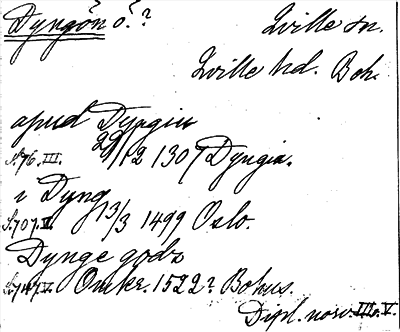 Dyngön ö.? Kville sn.
Kville hd. Boh.
apud Dyngiu
S.76.III. 29/12 1307 Dyngia.
i Dyng
S.707.V. 13/3 1499 Oslo.
Dynge gods
S.747.V. Omkr. 1522? Bohus.
Dipl. norv. III o. V.